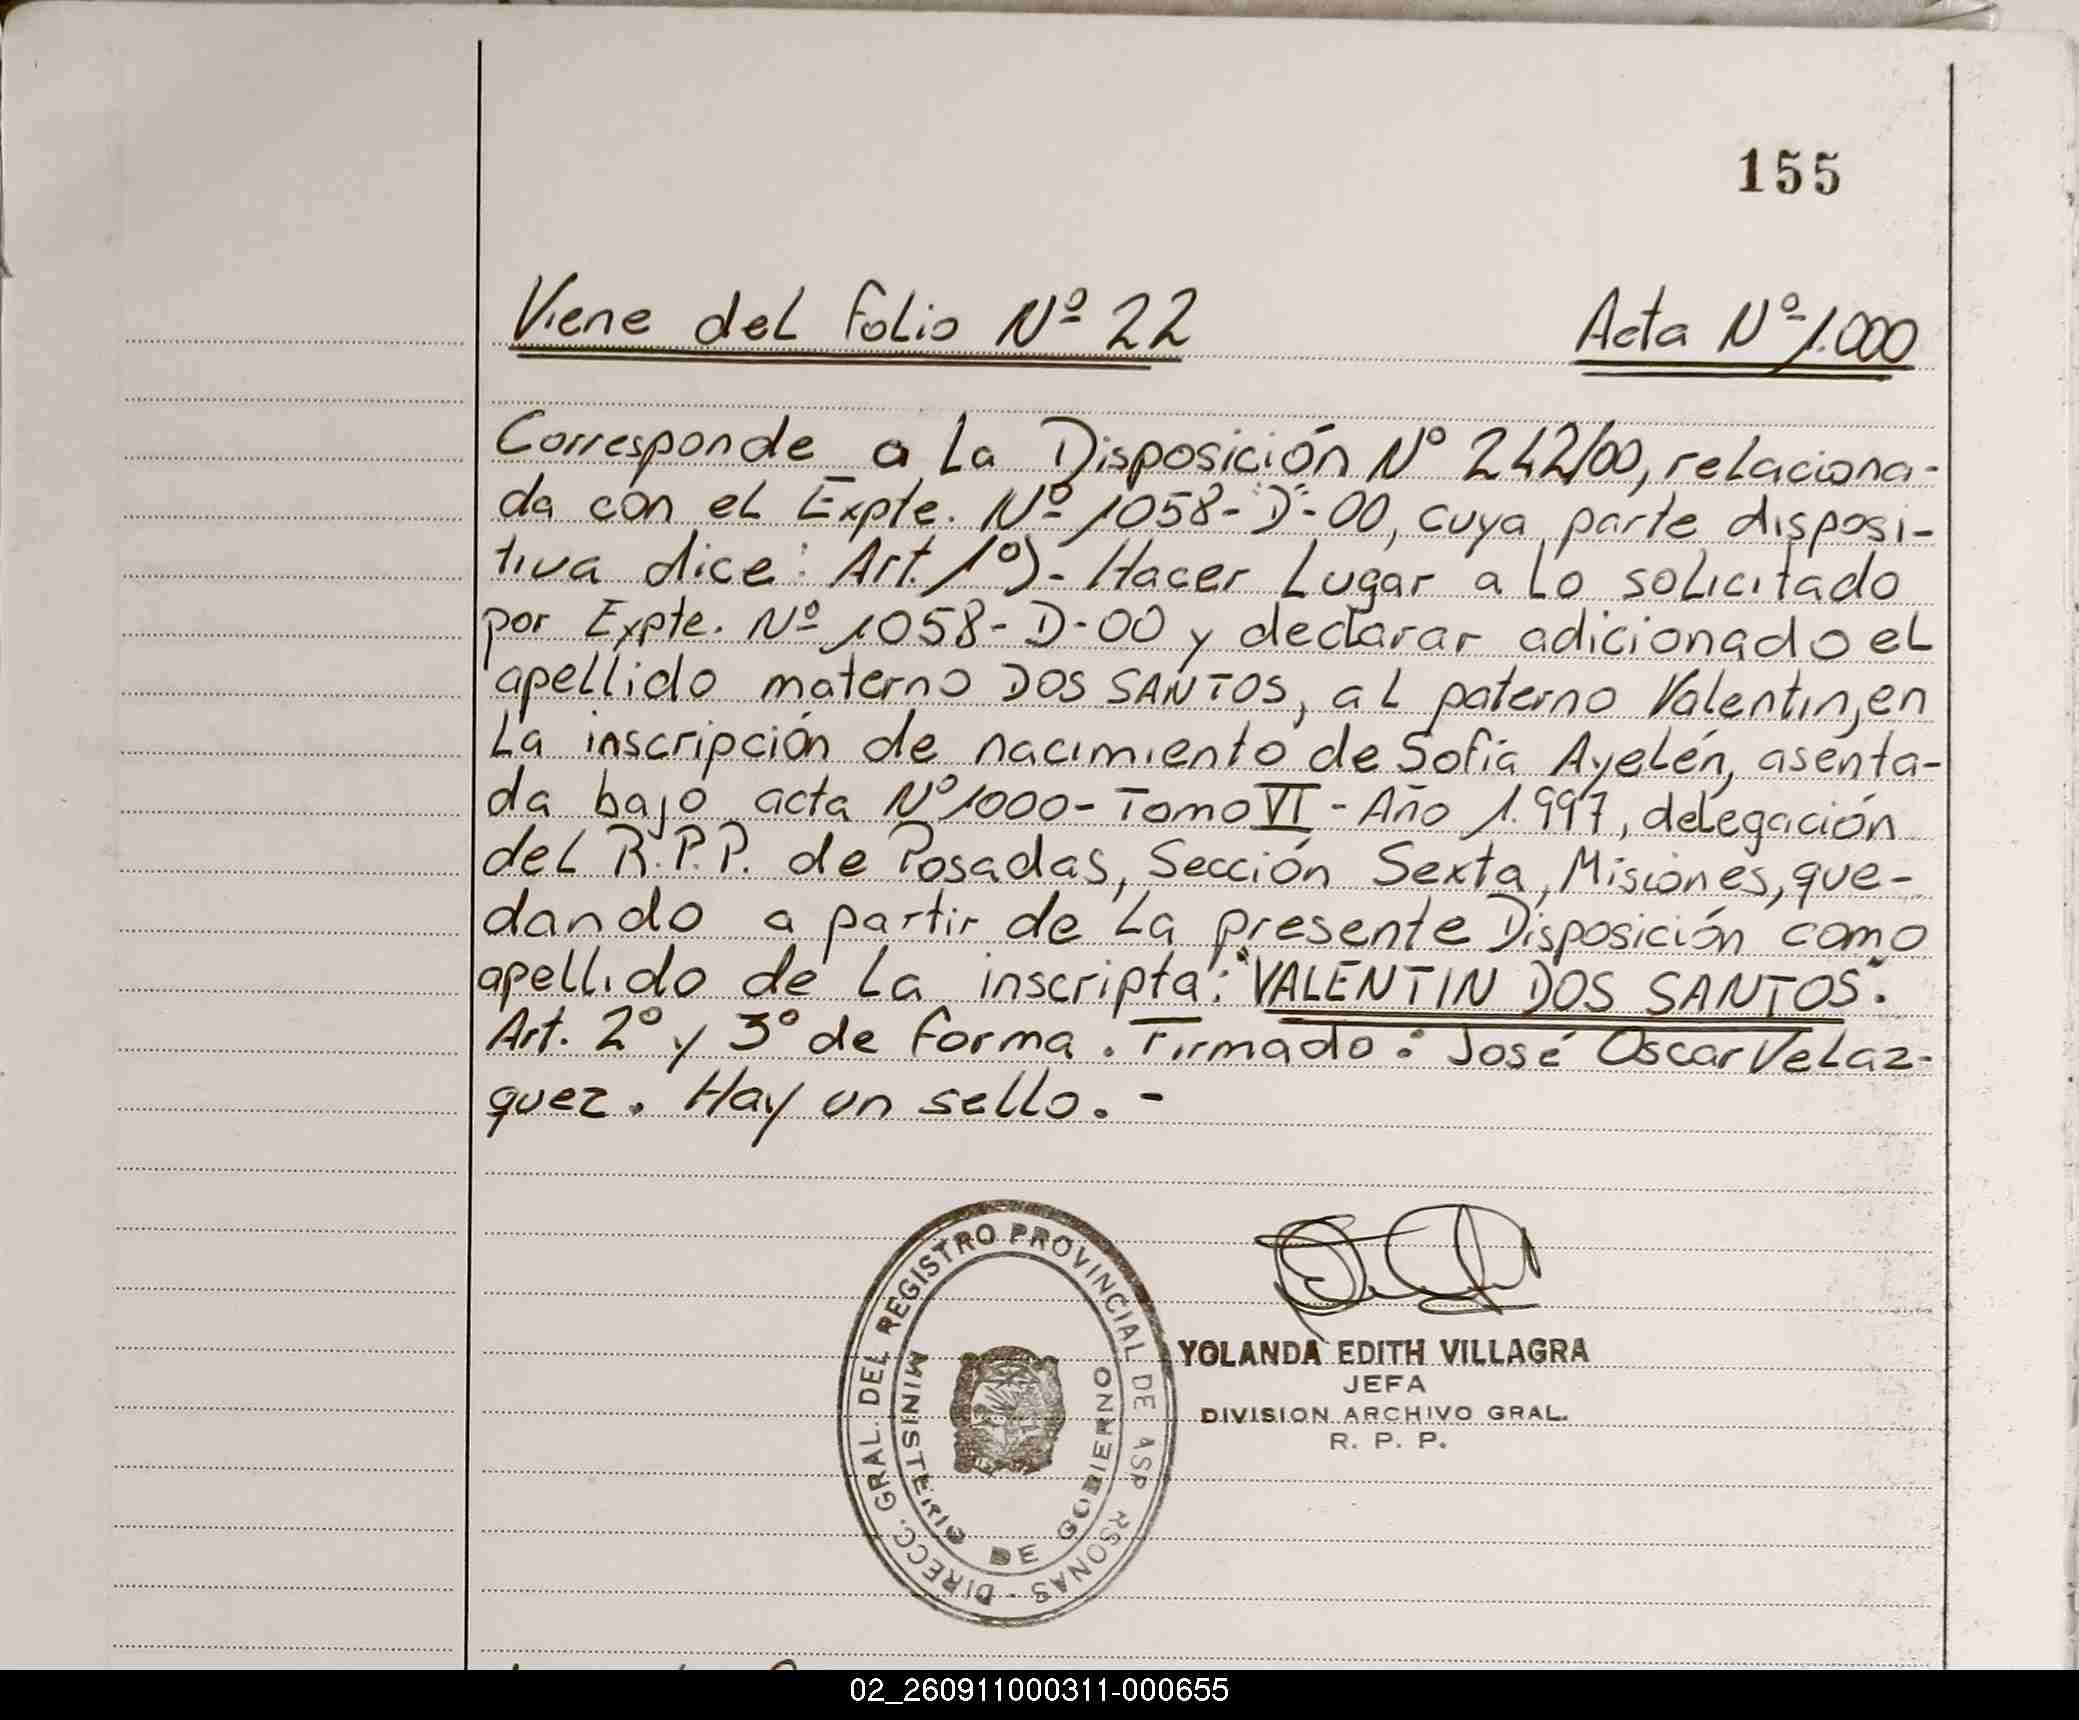 155
Viene del folio Nº 22 Acta Nº 1.000
Corresponde a la Disposición Nº 242/00, relaciona-
da con el Expte. Nº 1058-"D"-00, cuya parte disposi-
tiva dice: Art. 1º).- Hacer lugar a lo solicitado
por Expte. Nº 1058-D-00 y declarar adicionado el
apellido materno DOS SANTOS, al paterno Valentin, en
la inscripción de nacimiento de Sofía Ayelén, asenta-
da bajo acta Nº 1000- Tomo VI - Año 1.997, delegación
del R.P.P. de Posadas, Sección Sexta, Misiones, que-
dando a partir de la presente Disposición como
apellido de la inscripta: "VALENTIN DOS SANTOS".
Art. 2º y 3º de forma. Firmado: José Oscar Velaz-
quez. Hay un sello. -
DIRECC. GRAL. DEL REGISTRO PROVINCIAL DE
MINISTERIO DE GOBIERNO
YOLANDA EDITH VILLAGRA
JEFA
DIVISION ARCHIVO GRAL.
R. P. P.
02_260911000311-000655